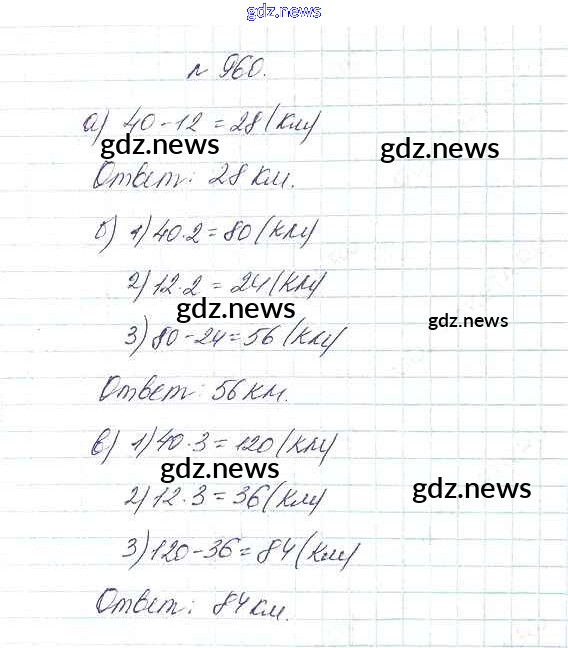 gdz.news
№ 960.
а) 40-12=28(км)
gdz.news
gdz.news
Ответ: 28 км.
б) 1) 40·2=80(км)
2) 12·2=24(км)
gdz.news
gdz.news
3) 80-24=56(км)
Ответ: 56 км.
в) 1) 40·3=120(км)
gdz.news
gdz.news
2) 12·3=36(км)
3) 120-36=84(км)
Ответ: 84 км.